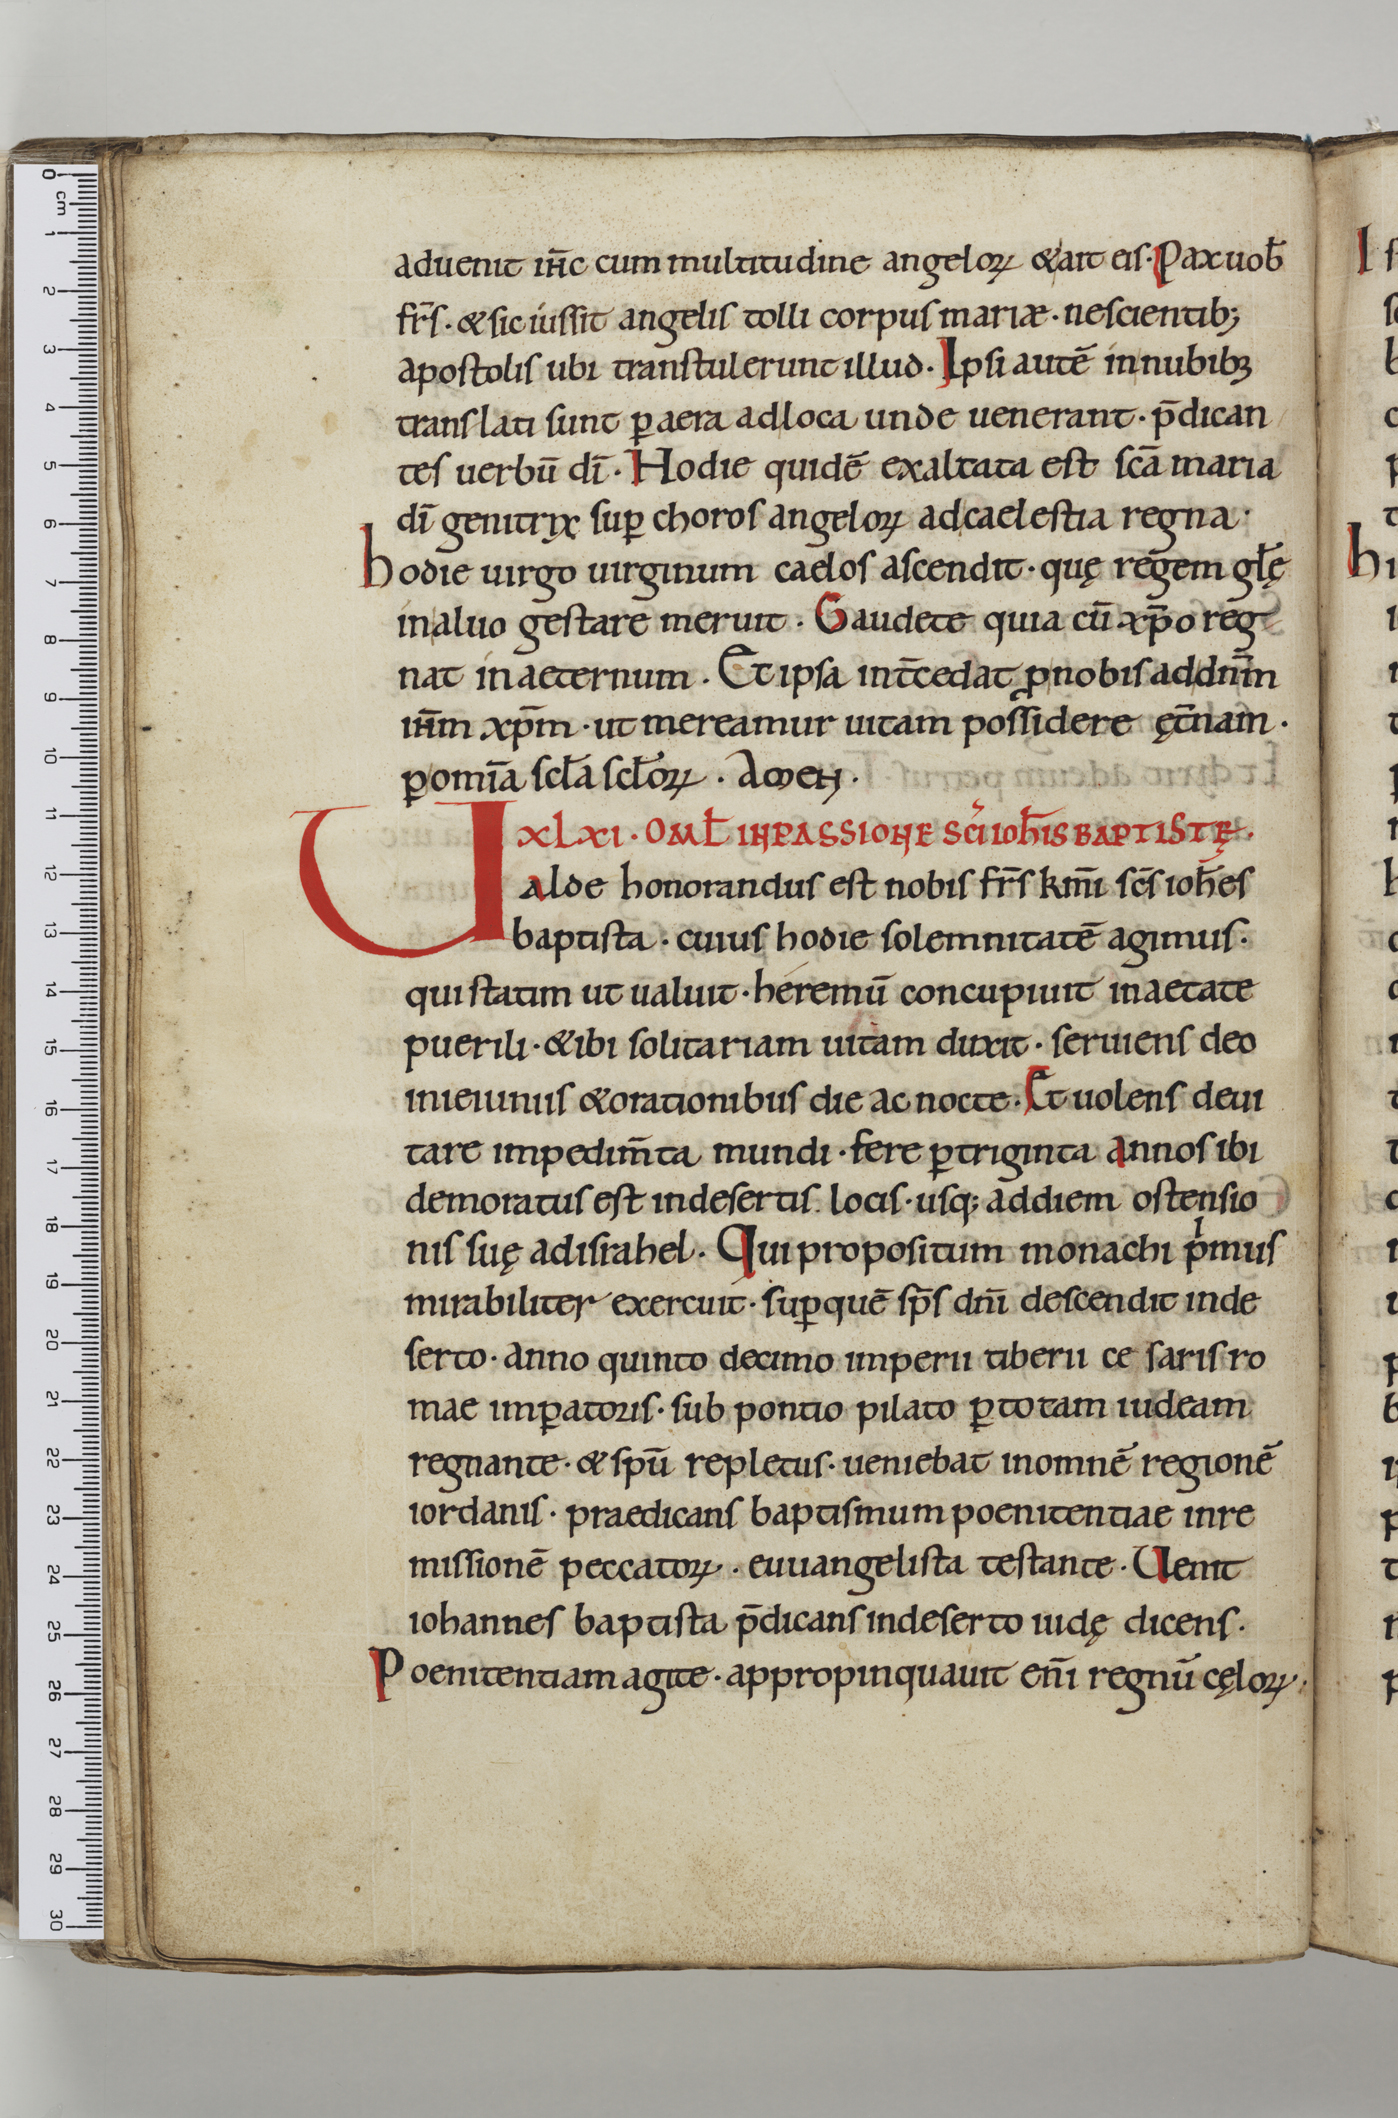 aduenit ih̄c cum multitudine angeloꝝ & ait eis· Pax uob̄
fr̄s· & sic iussit angelis tolli corpus mariæ· nescientib;
apostolis ubi transtulerunt illud· Ipsi autē in nubibꝫ
translati sunt ꝑ aera ad loca unde uenerant· p̄dican
tes uerbū dī· Hodie quidē exaltata est sc̄a maria
dī genitrix suꝑ choros angeloꝝ ad caelestia regna·
hodie uirgo uirginum caelos ascendit· quę regem gl̄ę
in aluo gestare meruit· Gaudete quia cū xp̄o reg
nat in aeternum· Et ipsa int̄cedat ꝓ nobis ad dn̄m
ih̄m xp̄m· ut mereamur uitam possidere ęt̄nam·
ꝑ om̄ia scl̄a scl̄oꝝ· Amen·
xlxi· OML̄ IN PASSIONE SC̄I IOH̄IS BAPTISTĘ·
Ualde honorandus est nobis fr̄s km̄i sc̄s ioh̄es
baptista· cuius hodie solemnitatē agimus·
qui statim ut ualuit· heremū concupiuit in aetate
puerili· & ibi solitariam uitam duxit· seruiens deo
in ieiuniis & orationibus die ac nocte· Et uolens deui
tare impedim̄ta mundi· fere ꝑ triginta annos ibi
demoratus est in desertis locis· usq; ad diem ostensio
nis suę ad israhel· Qui propositum monachi pͥmus
mirabiliter exercuit· suꝑ quē sp̄s dn̄i descendit in de
serto· anno quinto decimo imperii tiberii ce saris ro
mae imꝑatoris· sub pontio pilato ꝑ totam iudeam
regnante· & spū repletus· ueniebat in omnē regionē
iordanis· praedicans baptismum poenitentiae in re
missionē peccatoꝝ· euuangelista testante· Uenit
iohannes baptista p̄dicans in deserto iudę dicens·
Poenitentiam agite· appropinquauit en̄i regnū cęloꝝ·